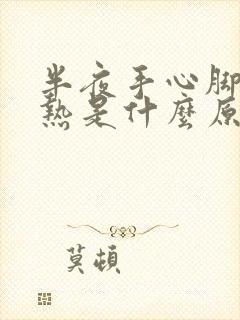 半夜手心脚
熱是什麼原
莫頓